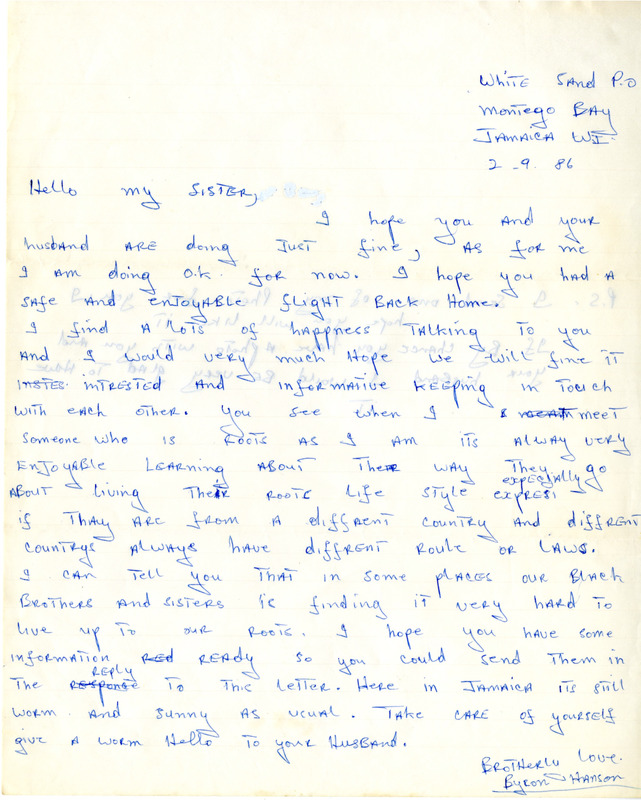 White Sand P.O
Montego Bay
Jamaica W.I.
2-9. 86
Hello my Sister,
I hope you and your
husband are doing just fine, as for me
I am doing o.k. for now. I hope you had a
safe and enjoyable flight back home.
I find a lots of happness talking to you
and I would very much hope we will fine it
instes intrested and informative keeping in touch
with each other. you see when I meet
someone who is roots as I am its alway very
enjoyable learning about their way they go
about living their roots life style expresi especially
if thay are from a diffrent country and diffrent
countrys always have diffrent route or laws.
I can tell you that in some places our Black
Brothers and sisters is finding it very hard to
live up to our roots. I hope you have some
information red ready so you could send them in
the response reply to this letter. Here in Jamaica its still
worm and sunny as usual. Take care of yourself
give a worm hello to your husband.
Brotherly Love.
Byron Hanson